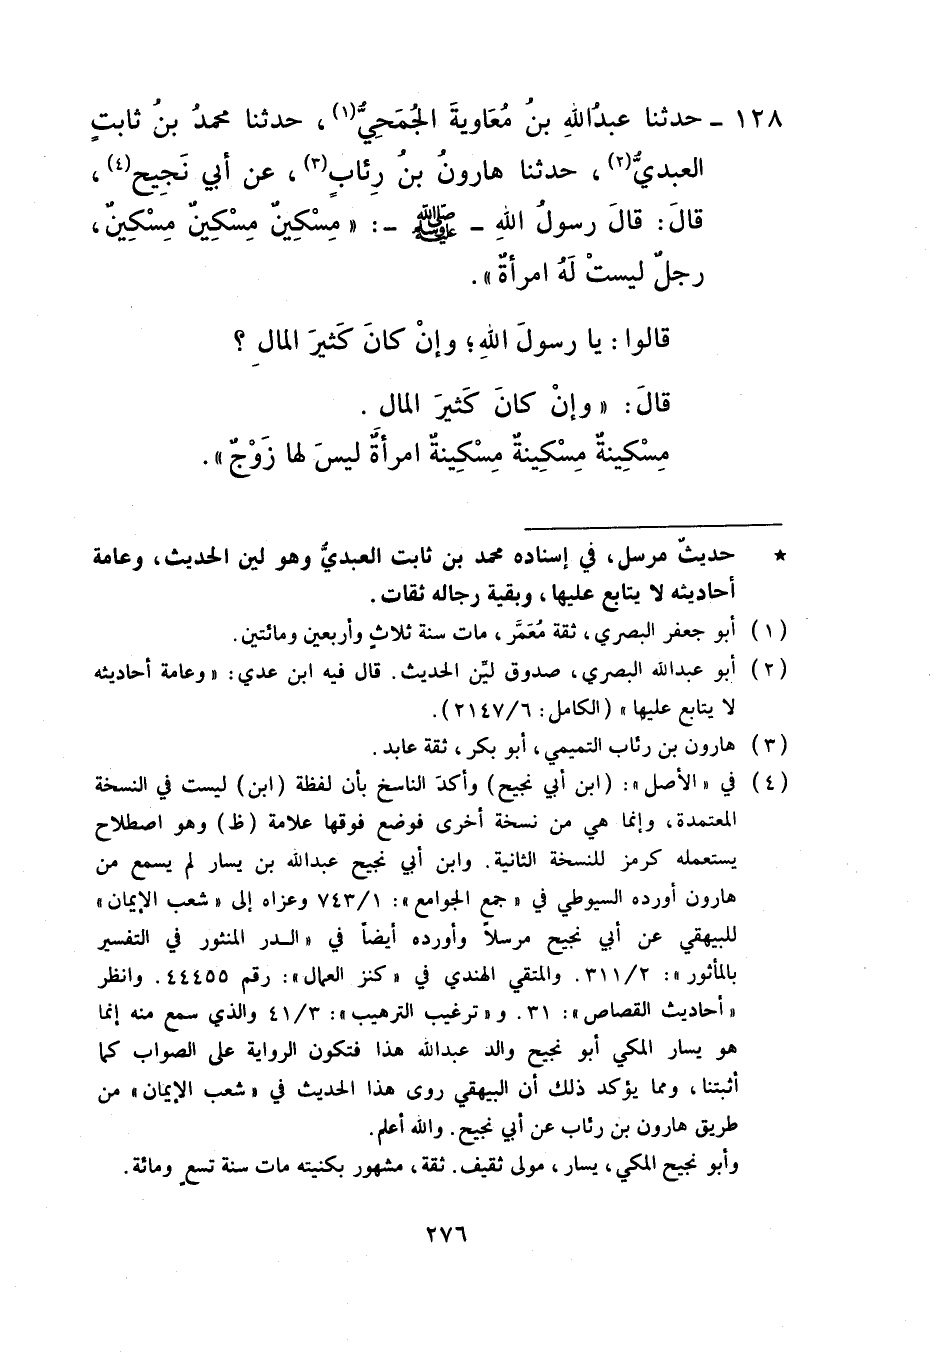 ١٢٨ ـ حدثنا عبدُاللهِ بنُ مُعَاويةَ الجُمَحِيُّ(١)، حدثنا محمدُ بنُ ثابتٍ
العبديُّ(٢)، حدثنا هارونُ بنُ رِئابٍ(٣)، عن أبي نَجِيح(٤)،
قالَ: قالَ رسولُ اللهِ ـ ﷺ ـ: « مِسْكِينٌ مِسْكِينٌ مِسْكِينٌ،
رجلٌ ليستْ لَهُ امرأةٌ ».
قالوا: يا رسولَ اللهِ؛ وإنْ كانَ كَثيرَ المالِ ؟
قالَ: « وإنْ كانَ كَثيرَ المال .
مِسْكِينةٌ مِسْكِينةٌ مِسْكِينةٌ امرأةٌ ليسَ لها زَوْجٌ ».
★ حديثٌ مرسل، في إسناده محمد بن ثابت العبديُّ وهو لين الحديث، وعامة
أحاديثه لا يتابع عليها، وبقية رجاله ثقات.
(١) أبو جعفر البصري، ثقة مُعَمَّر، مات سنة ثلاثٍ وأربعين ومائتين.
(٢) أبو عبدالله البصري، صدوق ليِّن الحديث. قال فيه ابن عدي: « وعامة أحاديثه
لا يتابع عليها » (الكامل: ٢١٤٧/٦).
(٣) هارون بن رئاب التميمي، أبو بكر، ثقة عابد.
(٤) في « الأصل »: (ابن أبي نجيح) وأكدَ الناسخ بأن لفظة (ابن) ليست في النسخة
المعتمدة، وإنما هي من نسخة أخرى فوضع فوقها علامة (ظ) وهو اصطلاح
يستعمله كرمز للنسخة الثانية. وابن أبي نجيح عبدالله بن يسار لم يسمع من
هارون أورده السيوطي في « جمع الجوامع »: ٧٤٣/١ وعزاه إلى « شعب الإيمان »
للبيهقي عن أبي نجيح مرسلاً وأورده أيضاً في « الدر المنثور في التفسير
بالمأثور »: ٣١١/٢. والمتقي الهندي في « كنز العمال »: رقم ٤٤٤٥٥. وانظر
« أحاديث القصاص »: ٣١. و « ترغيب الترهيب »: ٤١/٣ والذي سمع منه إنما
هو يسار المكي أبو نجيح والد عبدالله هذا فتكون الرواية على الصواب كما
أثبتنا، ومما يؤكد ذلك أن البيهقي روى هذا الحديث في « شعب الإيمان » من
طريق هارون بن رئاب عن أبي نجيح. والله أعلم.
وأبو نجيح المكي، يسار، مولى ثقيف. ثقة، مشهور بكنيته مات سنة تسعٍ ومائة.
٢٧٦